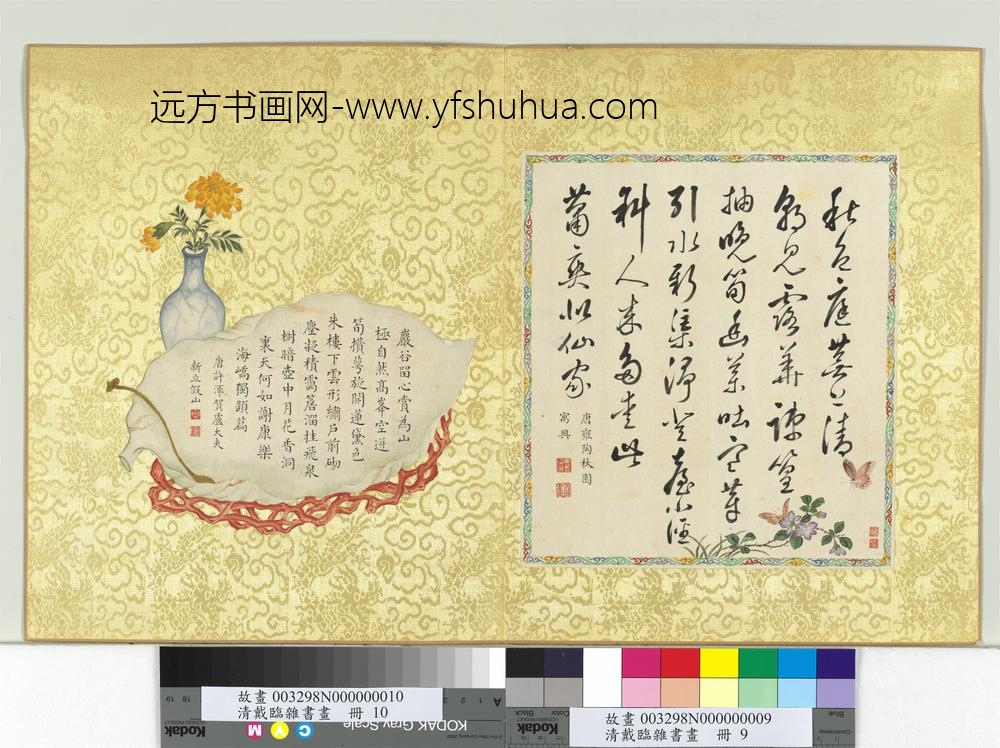 远方书画网-www.yfshuhua.com
秋色庭蕪上清
朝見露華疎篁
抽晚筍幽藥吐寒芽
引水新渠淨登臺小徑
斜人來多愛此
蕭爽似仙家
唐雍陶秋園
寓興
巖谷留心賞為山
極自然高峯空迸
筍攢萼旋開蓮黛色
朱樓下雲形繡戶前砌
塵凝積靄簷溜挂飛泉
樹暗壺中月花香洞
裏天何如謝康樂
海嶠獨題篇
唐許渾賀盧大夫
新立假山
故畫 003298N000000010
清戴臨雜書畫 冊 10
故畫 003298N000000009
清戴臨雜書畫 冊 9
KODAK Gray Scale
Kodak
C Y M
Kodak
Black
Blue